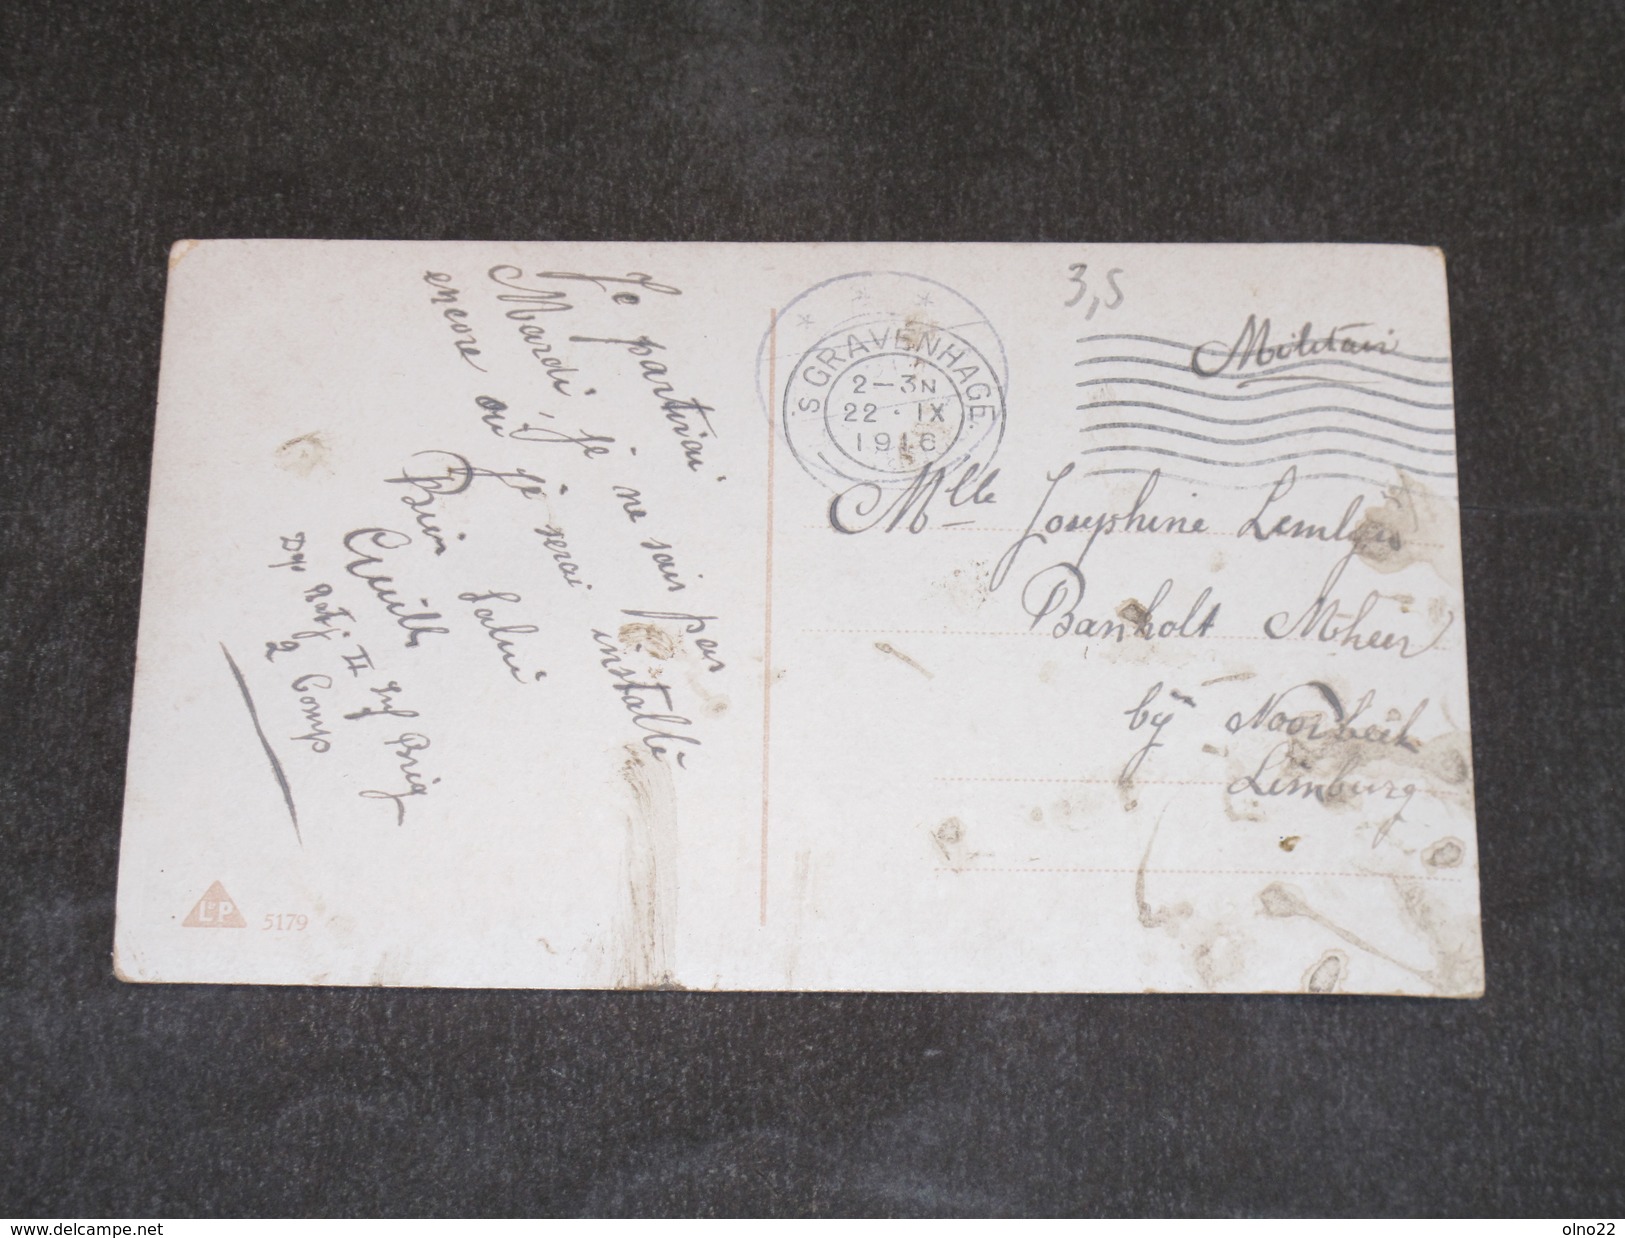 Je partirai
Mardi, je ne sais pas
encore où je serai installé
Bien Salui
Guill
Bat. II Inf Brig
2 Comp
LP 5179
'S GRAVENHAGE.
2-3N
22 · IX
1916
3,5
Militair
Mlle Josephine
Banholt Mheer
by Noorbeek
Limburg
www.delcampe.net
olno22